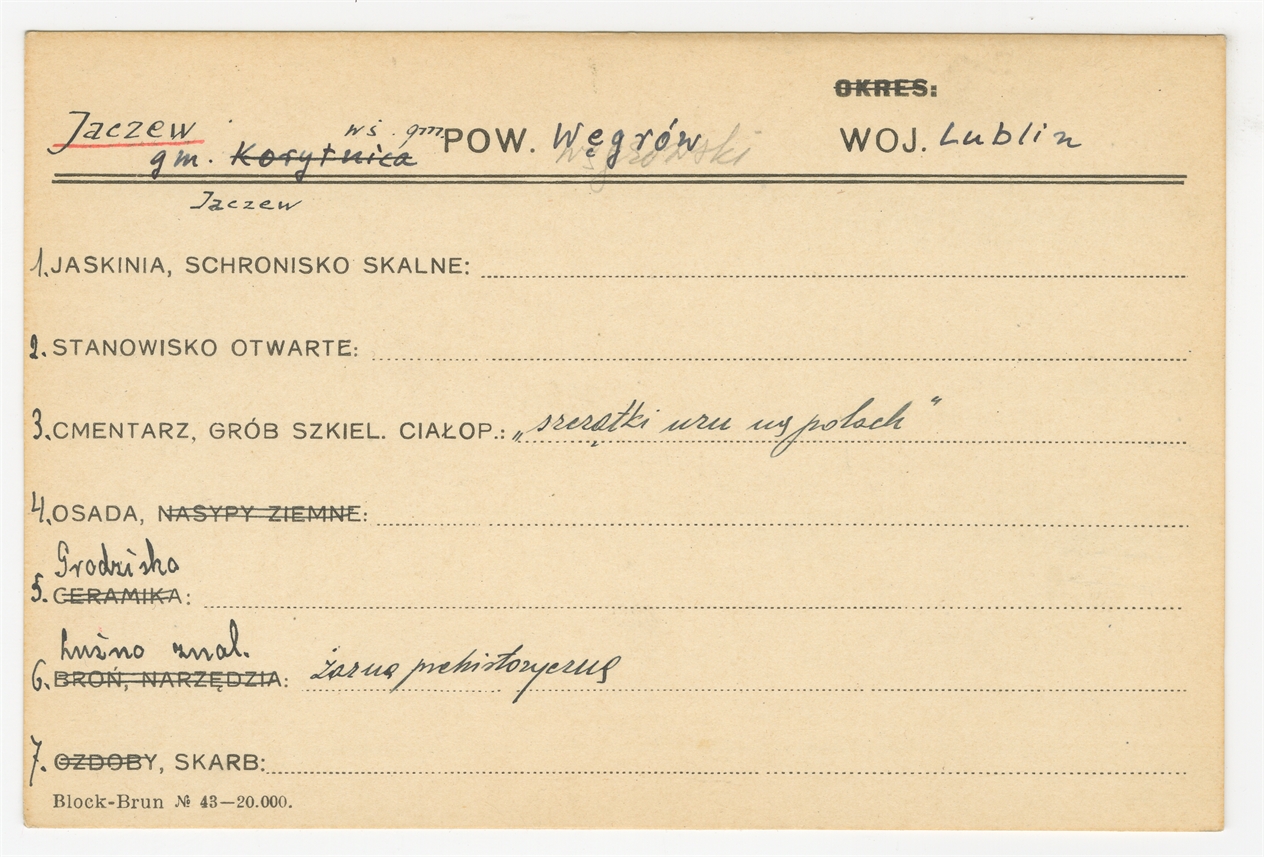 OKRES:
Jaczew wś. gm. POW. Węgrów WOJ. Lublin
gm. Korytnica
Jaczew
1. JASKINIA, SCHRONISKO SKALNE:
2. STANOWISKO OTWARTE:
3. CMENTARZ, GRÓB SZKIEL. CIAŁOP.: „szczątki urn na polach"
4. OSADA, NASYPY ZIEMNE:
Grodzisko
5. CERAMIKA:
Luźno znal.
6. BROŃ, NARZĘDZIA: żarna prehistoryczne
7. OZDOBY, SKARB:
Block-Brun № 43—20.000.